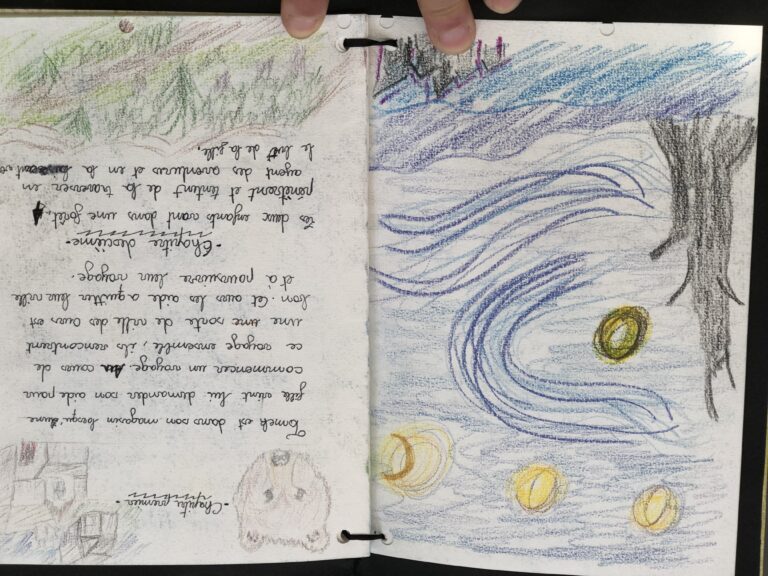 -Chapitre premier-
Tomek est dans son magasin lorsqu'une
fille vient lui demander son aide pour
commencer un voyage. Au cours de
ce voyage ensemble, ils rencontrent
une sorte de ville des Ours est
bon. Cet ours les aide a quitter leur ville
et a poursuivre leur voyage.
-Chapitre deuxième-
Les deux enfants vont dans une forêt,
pénètrent et tentent de la traverser en
ayent des aventures et en la
le but de la fille.